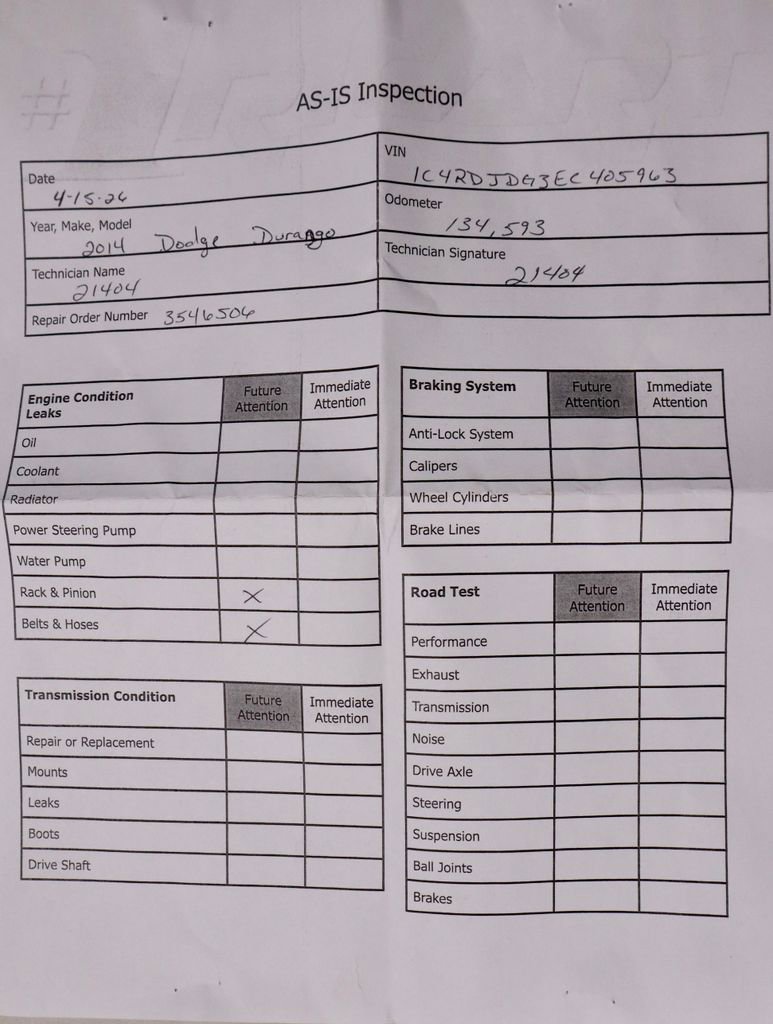 AS-IS Inspection
Date
4-15-26
VIN
1C4RDJDG3EC405963
Year, Make, Model
2014 Dodge Durango
Odometer
134,593
Technician Name
21404
Technician Signature
21404
Repair Order Number 3546506
Engine Condition Leaks Future Attention Immediate Attention
Oil
Coolant
Radiator
Power Steering Pump
Water Pump
Rack & Pinion X
Belts & Hoses X
Transmission Condition Future Attention Immediate Attention
Repair or Replacement
Mounts
Leaks
Boots
Drive Shaft
Braking System Future Attention Immediate Attention
Anti-Lock System
Calipers
Wheel Cylinders
Brake Lines
Road Test Future Attention Immediate Attention
Performance
Exhaust
Transmission
Noise
Drive Axle
Steering
Suspension
Ball Joints
Brakes